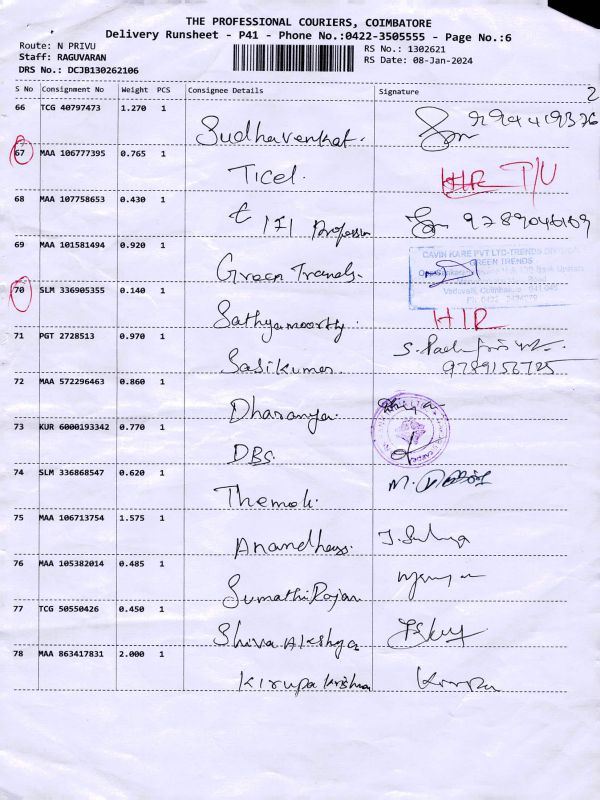 THE PROFESSIONAL COURIERS, COIMBATORE
Delivery Runsheet - P41 - Phone No.:0422-3505555 - Page No.:6
Route: N PRIVU
RS No.: 1302621
Staff: RAGUVARAN
RS Date: 08-Jan-2024
DRS No.: DCJB130262106
S No Consignment No Weight PCS Consignee Details Signature
2
66 TCG 40797473 1.270 1 Sudhavenkat.
67 MAA 106777395 0.765 1 Ticel. HIR T/U
68 MAA 107758653 0.430 1 9789046109
69 MAA 101581494 0.920 1 Green Trands.
CAVIN KARE PVT LTD-TRENDS DIVISION
GREEN TRENDS
70 SLM 336905355 0.140 1 Sathyamoorthy HIR
71 PGT 2728513 0.970 1 Sasikumar. 9789156725
72 MAA 572296463 0.860 1 Dharanya.
73 KUR 6000193342 0.770 1 DBS.
74 SLM 336868547 0.620 1
75 MAA 106713754 1.575 1
76 MAA 105382014 0.485 1 Sumathi Rajan
77 TCG 50550426 0.450 1 Shiva Akshya
78 MAA 863417831 2.000 1 Kirupa Krishna